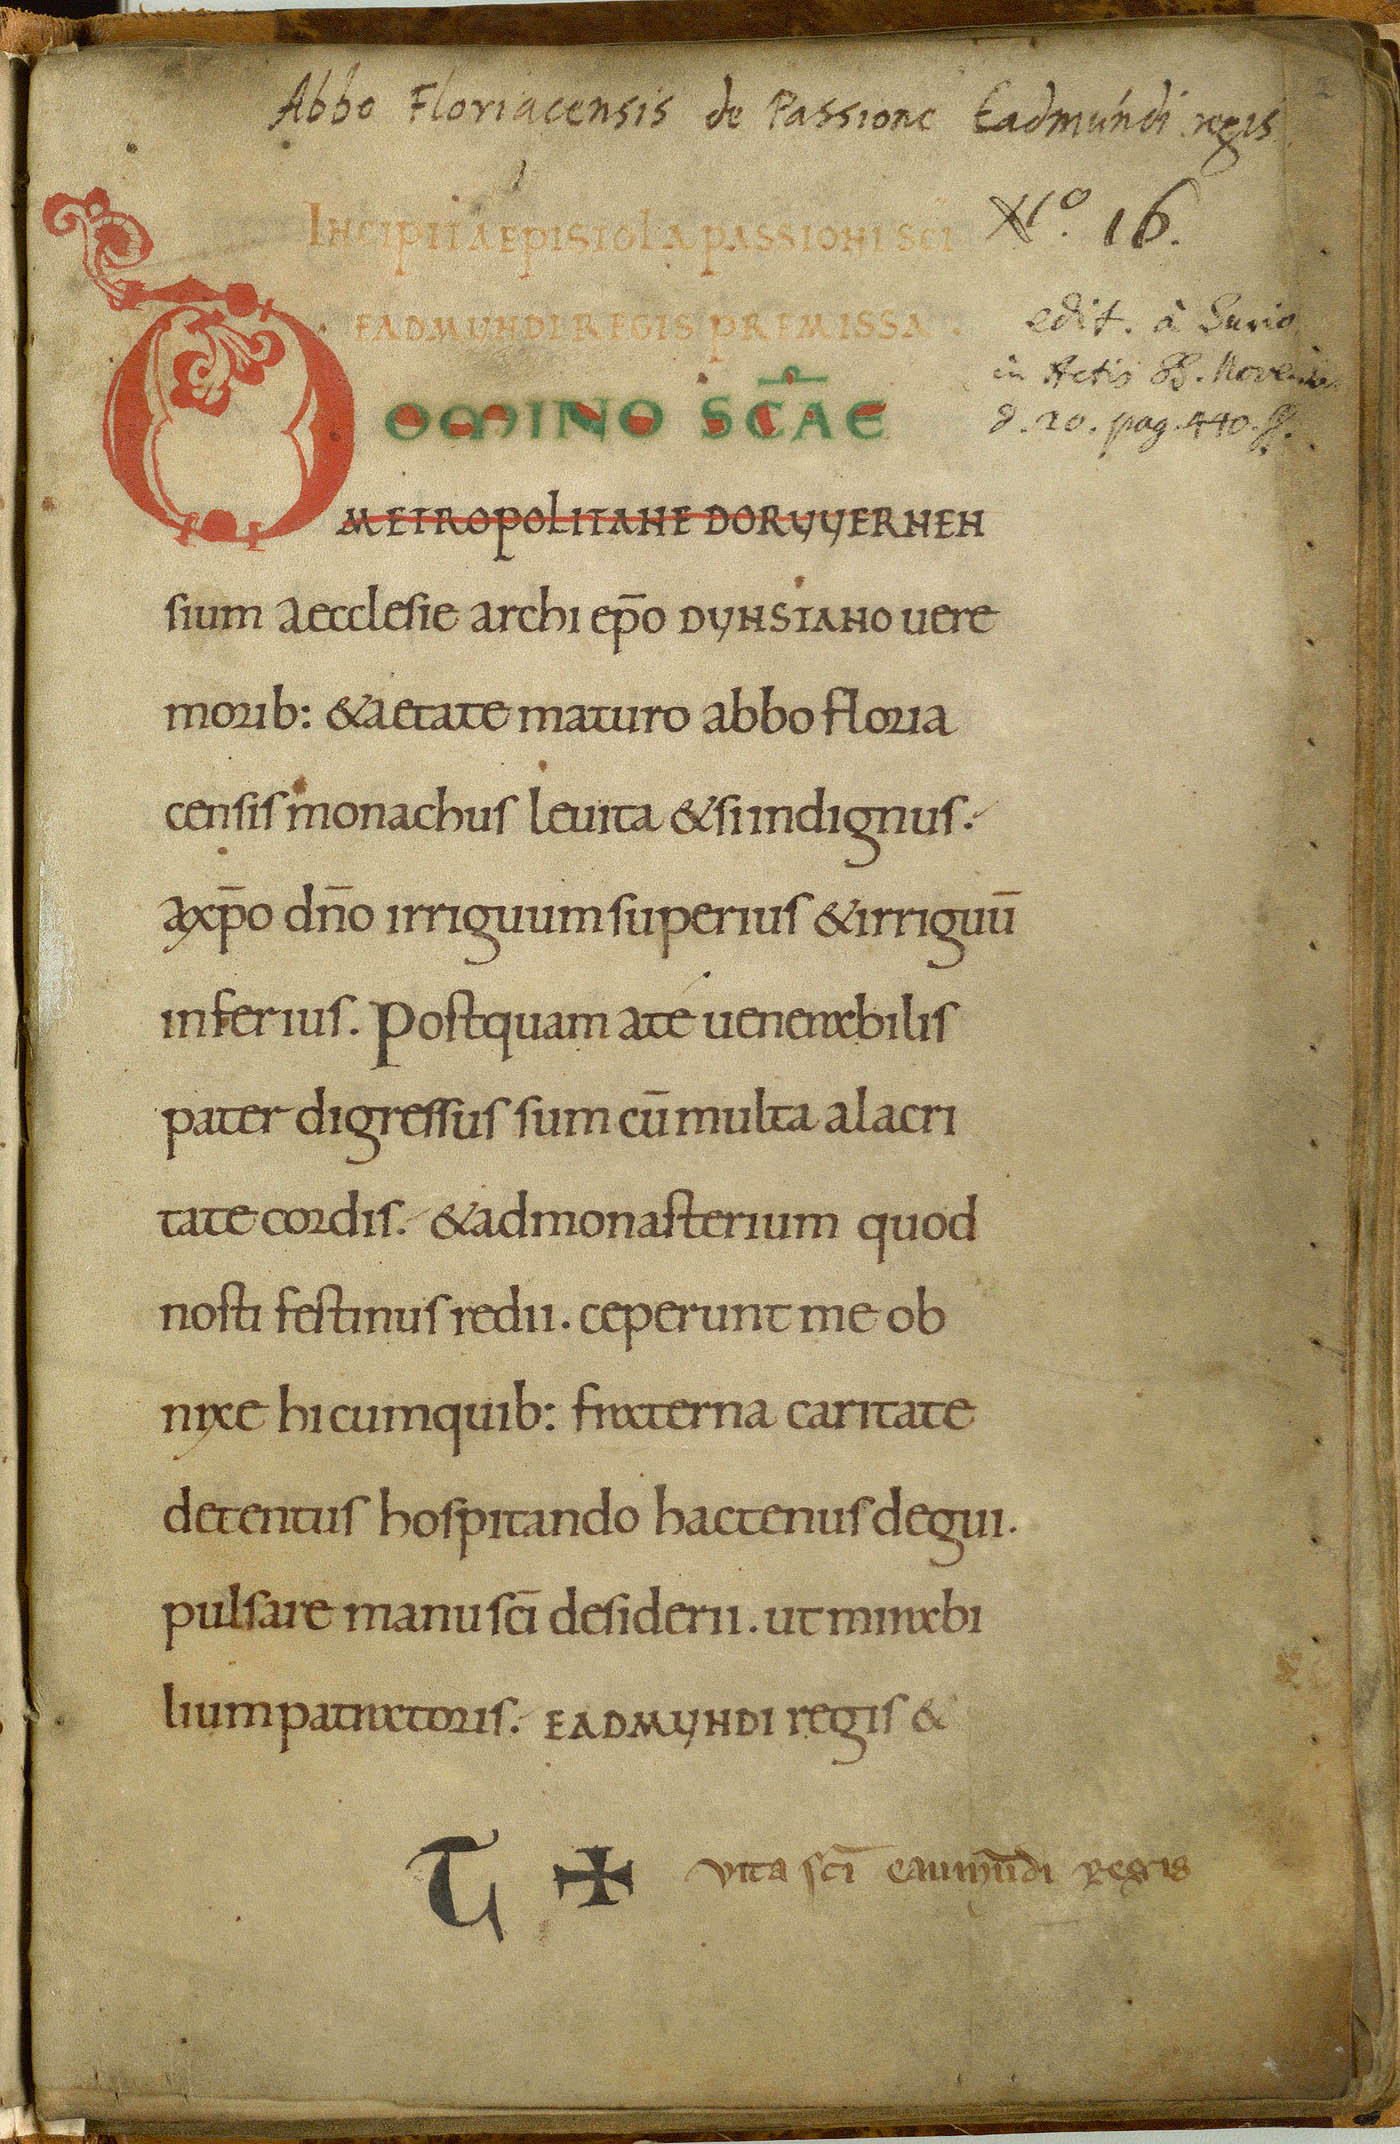 Abbo Floriacensis de Passione Eadmúndi regis
INCIPIT AEPISTOLA PASSIONI SCĪ
N.º 16.
EADMUNDI REGIS PREMISSA.
edit. à Surio
in Actis SS. Novemb.
d. 20. pag. 440. ff.
DOMINO SC̄AE
METROPOLITANE DORUUERNEN
sium aecclesie archi ep̄o DUNSTANO uere
morib: & aetate maturo abbo floria
censis monachus leuita & si indignus.
a xp̄o dn̄o irriguum superius & irriguū
inferius. Postquam a te uenerabilis
pater digressus sum cū multa alacri
tate cordis. & ad monasterium quod
nosti festinus redii. ceperunt me ob
nixe hi cum quib: fraterna caritate
detentus hospitando hactenus degui.
pulsare manu scī desiderii. ut mirabi
lium patratoris. EADMUNDI regis &
T ✠ vita scī eaumūdi regis